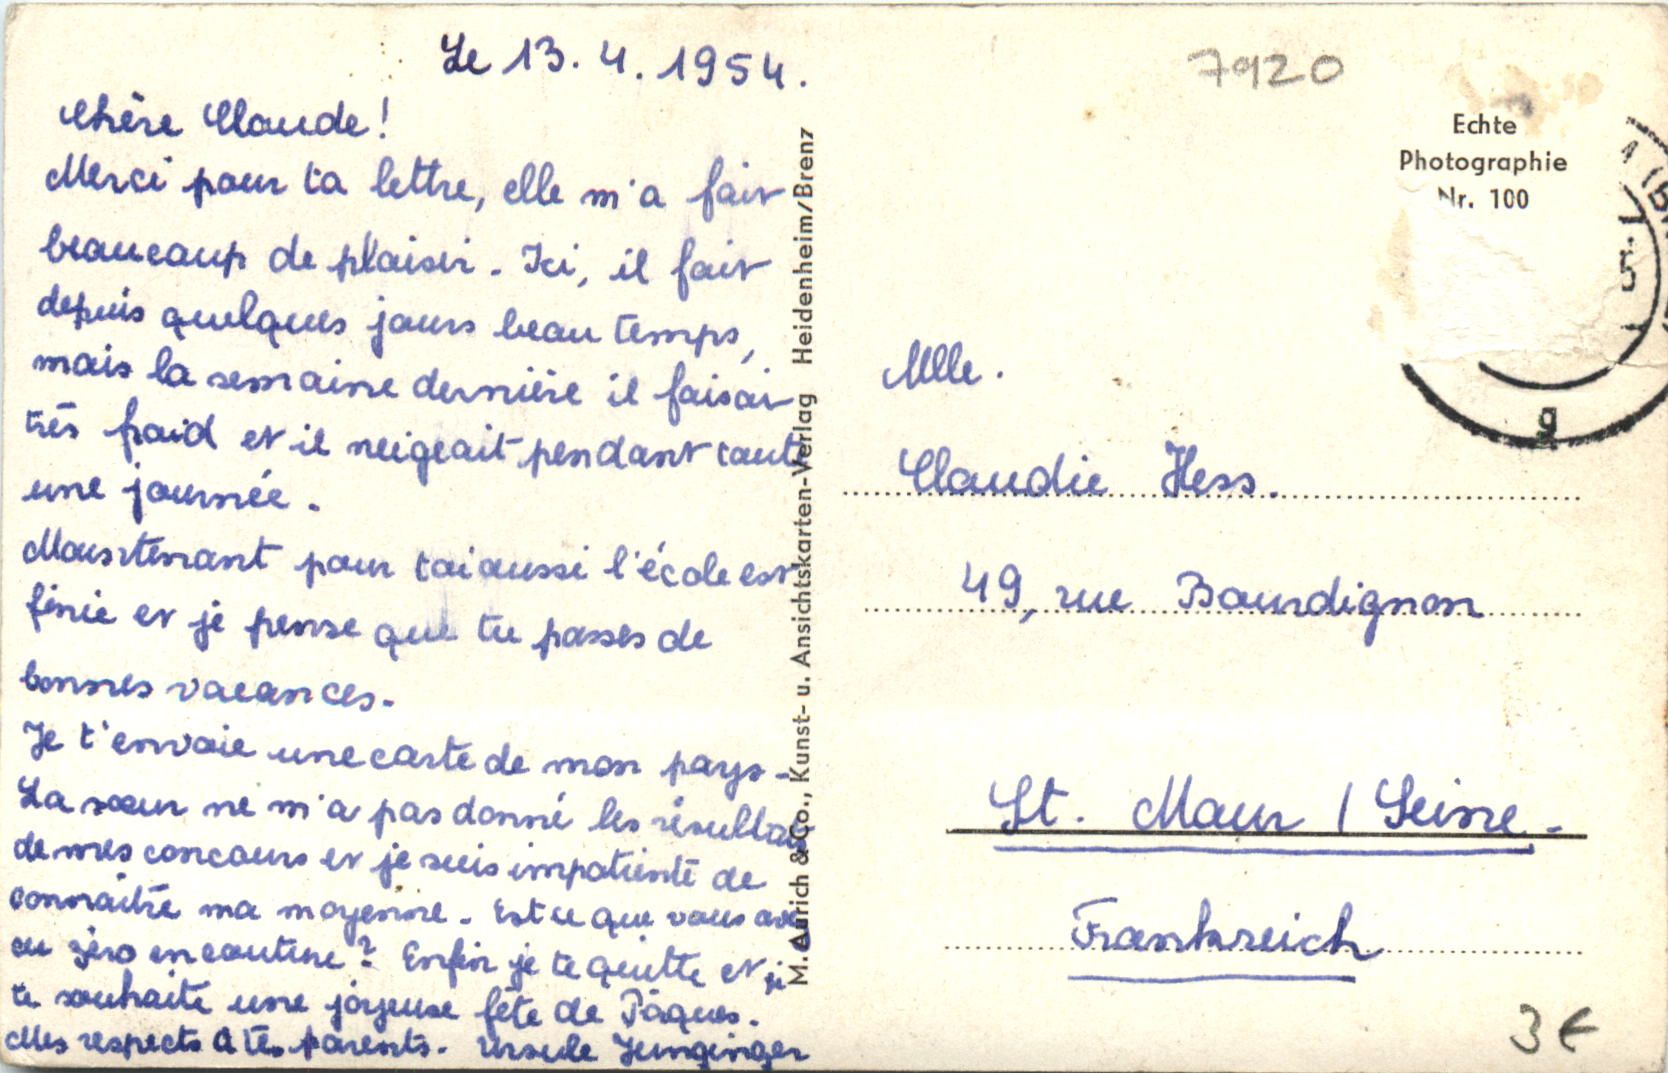 Le 13.4.1954.
Chère Claude!
Merci pour ta lettre, elle m'a fait
beaucoup de plaisir. Ici, il fait
depuis quelques jours beau temps,
mais la semaine dernière il faisait
très froid et il neigeait pendant toute
une journée.
Maintenant pour toi aussi l'école est
finie et je pense que tu passes de
bonnes vacances.
Je t'envoie une carte de mon pays.
La sœur ne m'a pas donné les résultats
de mes concours et je suis impatiente de
connaître ma moyenne. Est ce que vous avez
eu zéro en couture? Enfin je te quitte et je
te souhaite une joyeuse fête de Pâques.
Mes respects à tes parents. Ursule Junginger
M. Aurich & Co., Kunst- u. Ansichtskarten-Verlag Heidenheim/Brenz
7920
Echte
Photographie
Nr. 100
g
Mlle.
Claudie Hess.
49, rue Bourdignon
St. Maur / Seine.
Frankreich
3 €